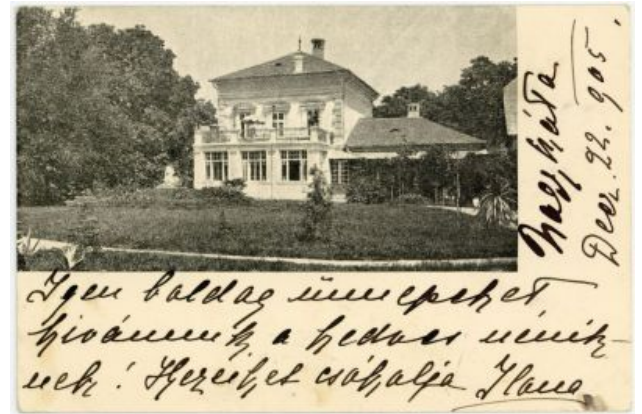 Nagykáta
Decz. 22. 905.
Igen boldog ünnepeket
kivánunk a kedves nénik-
nek! Kezeiket csókolja Ilona